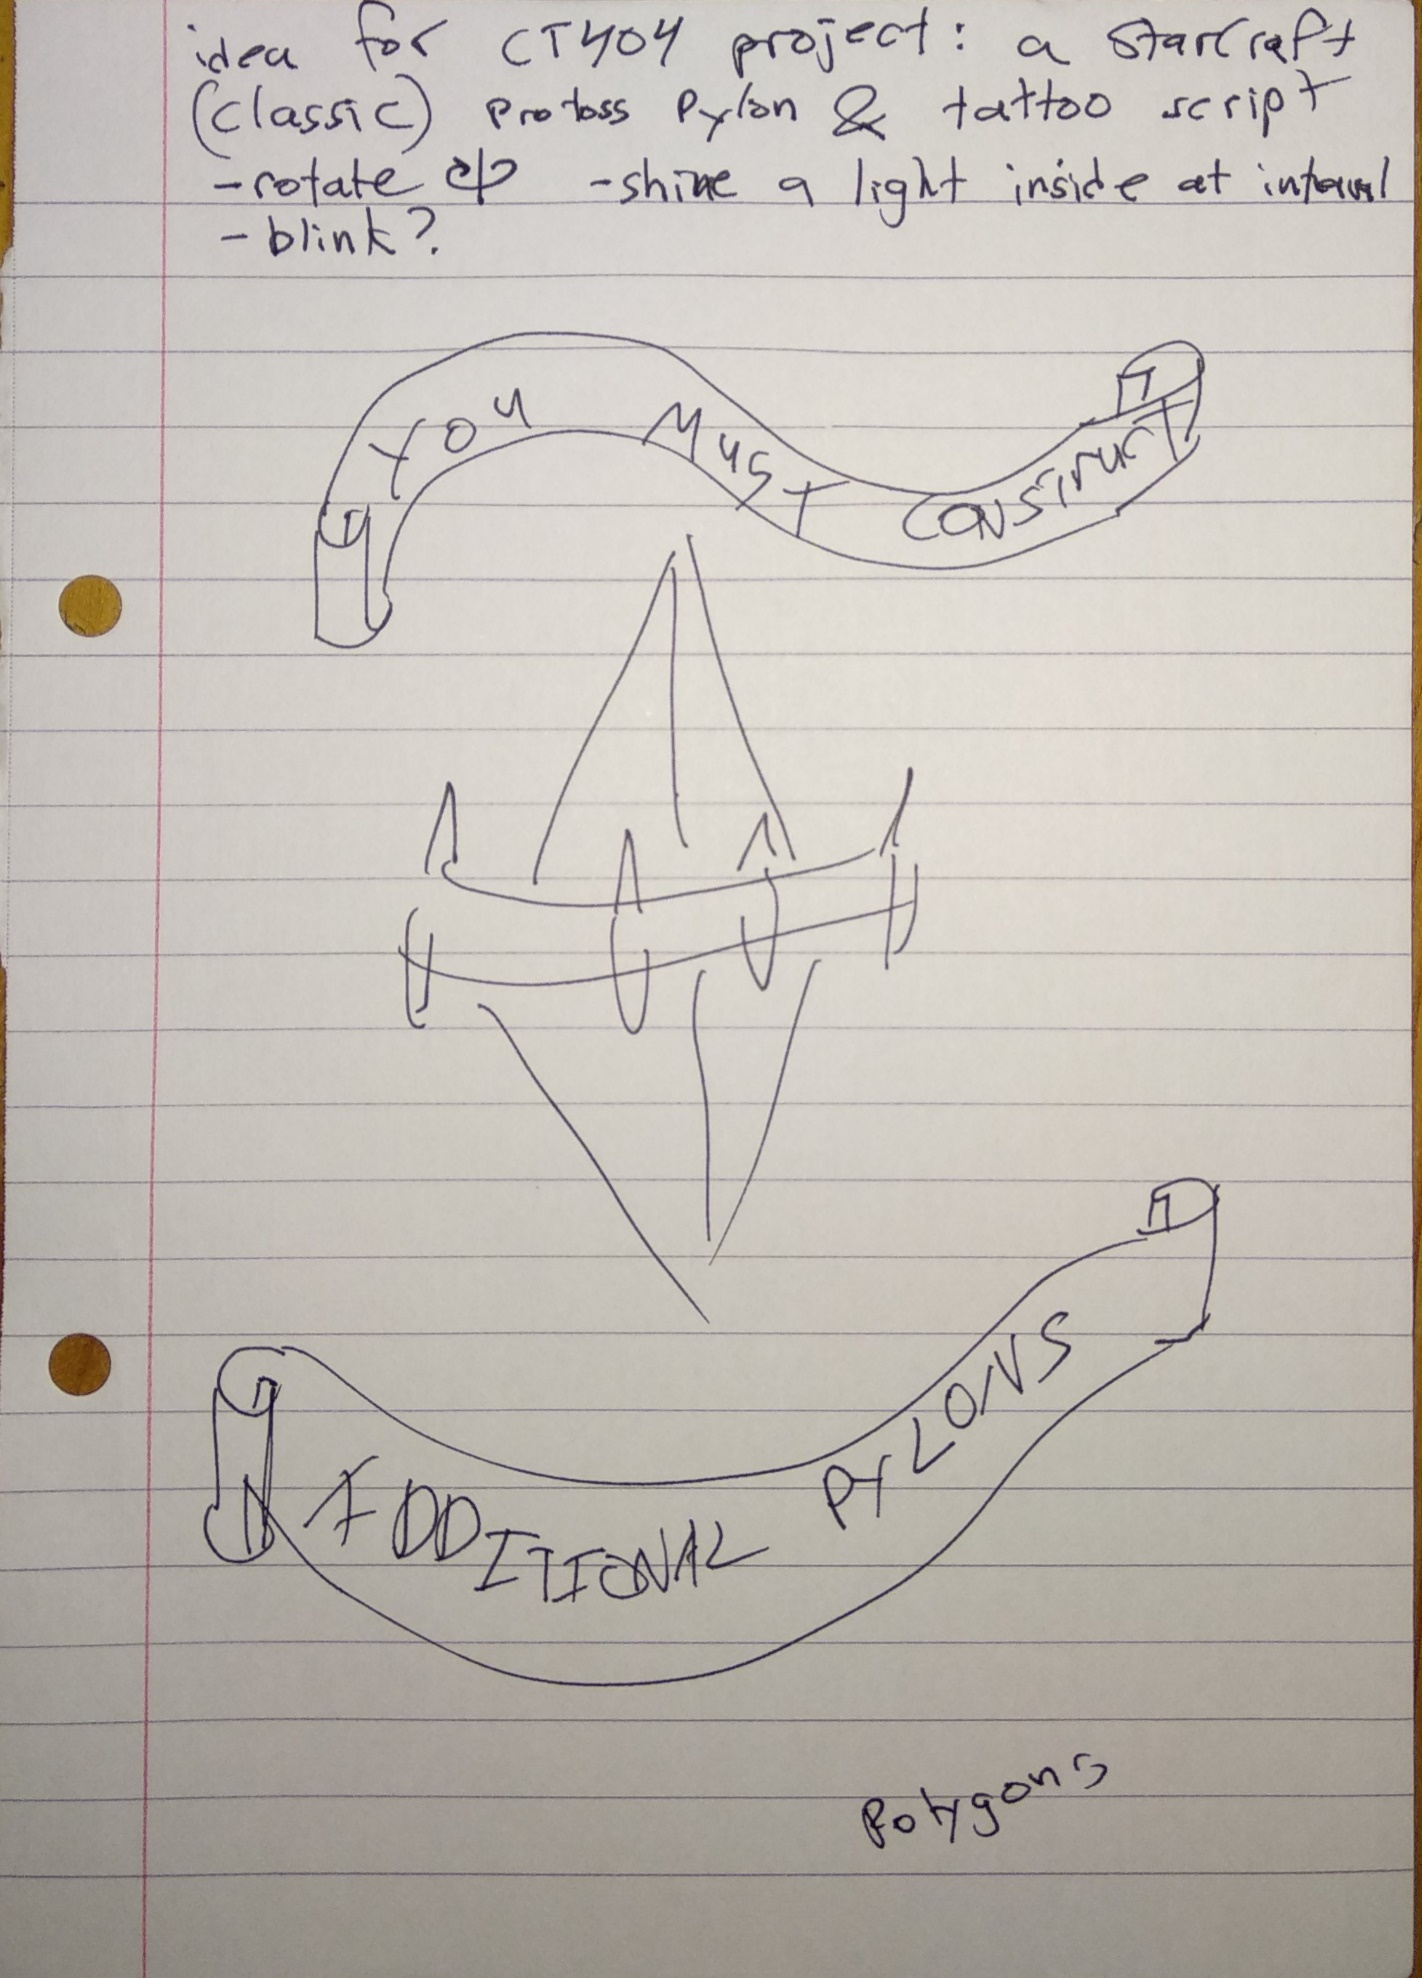 idea for CT404 project: a StarCraft
(classic) Protoss Pylon & tattoo script
-rotate -shine a light inside at interval
-blink?
YOU MUST CONSTRUCT
ADDITIONAL PYLONS
Polygons